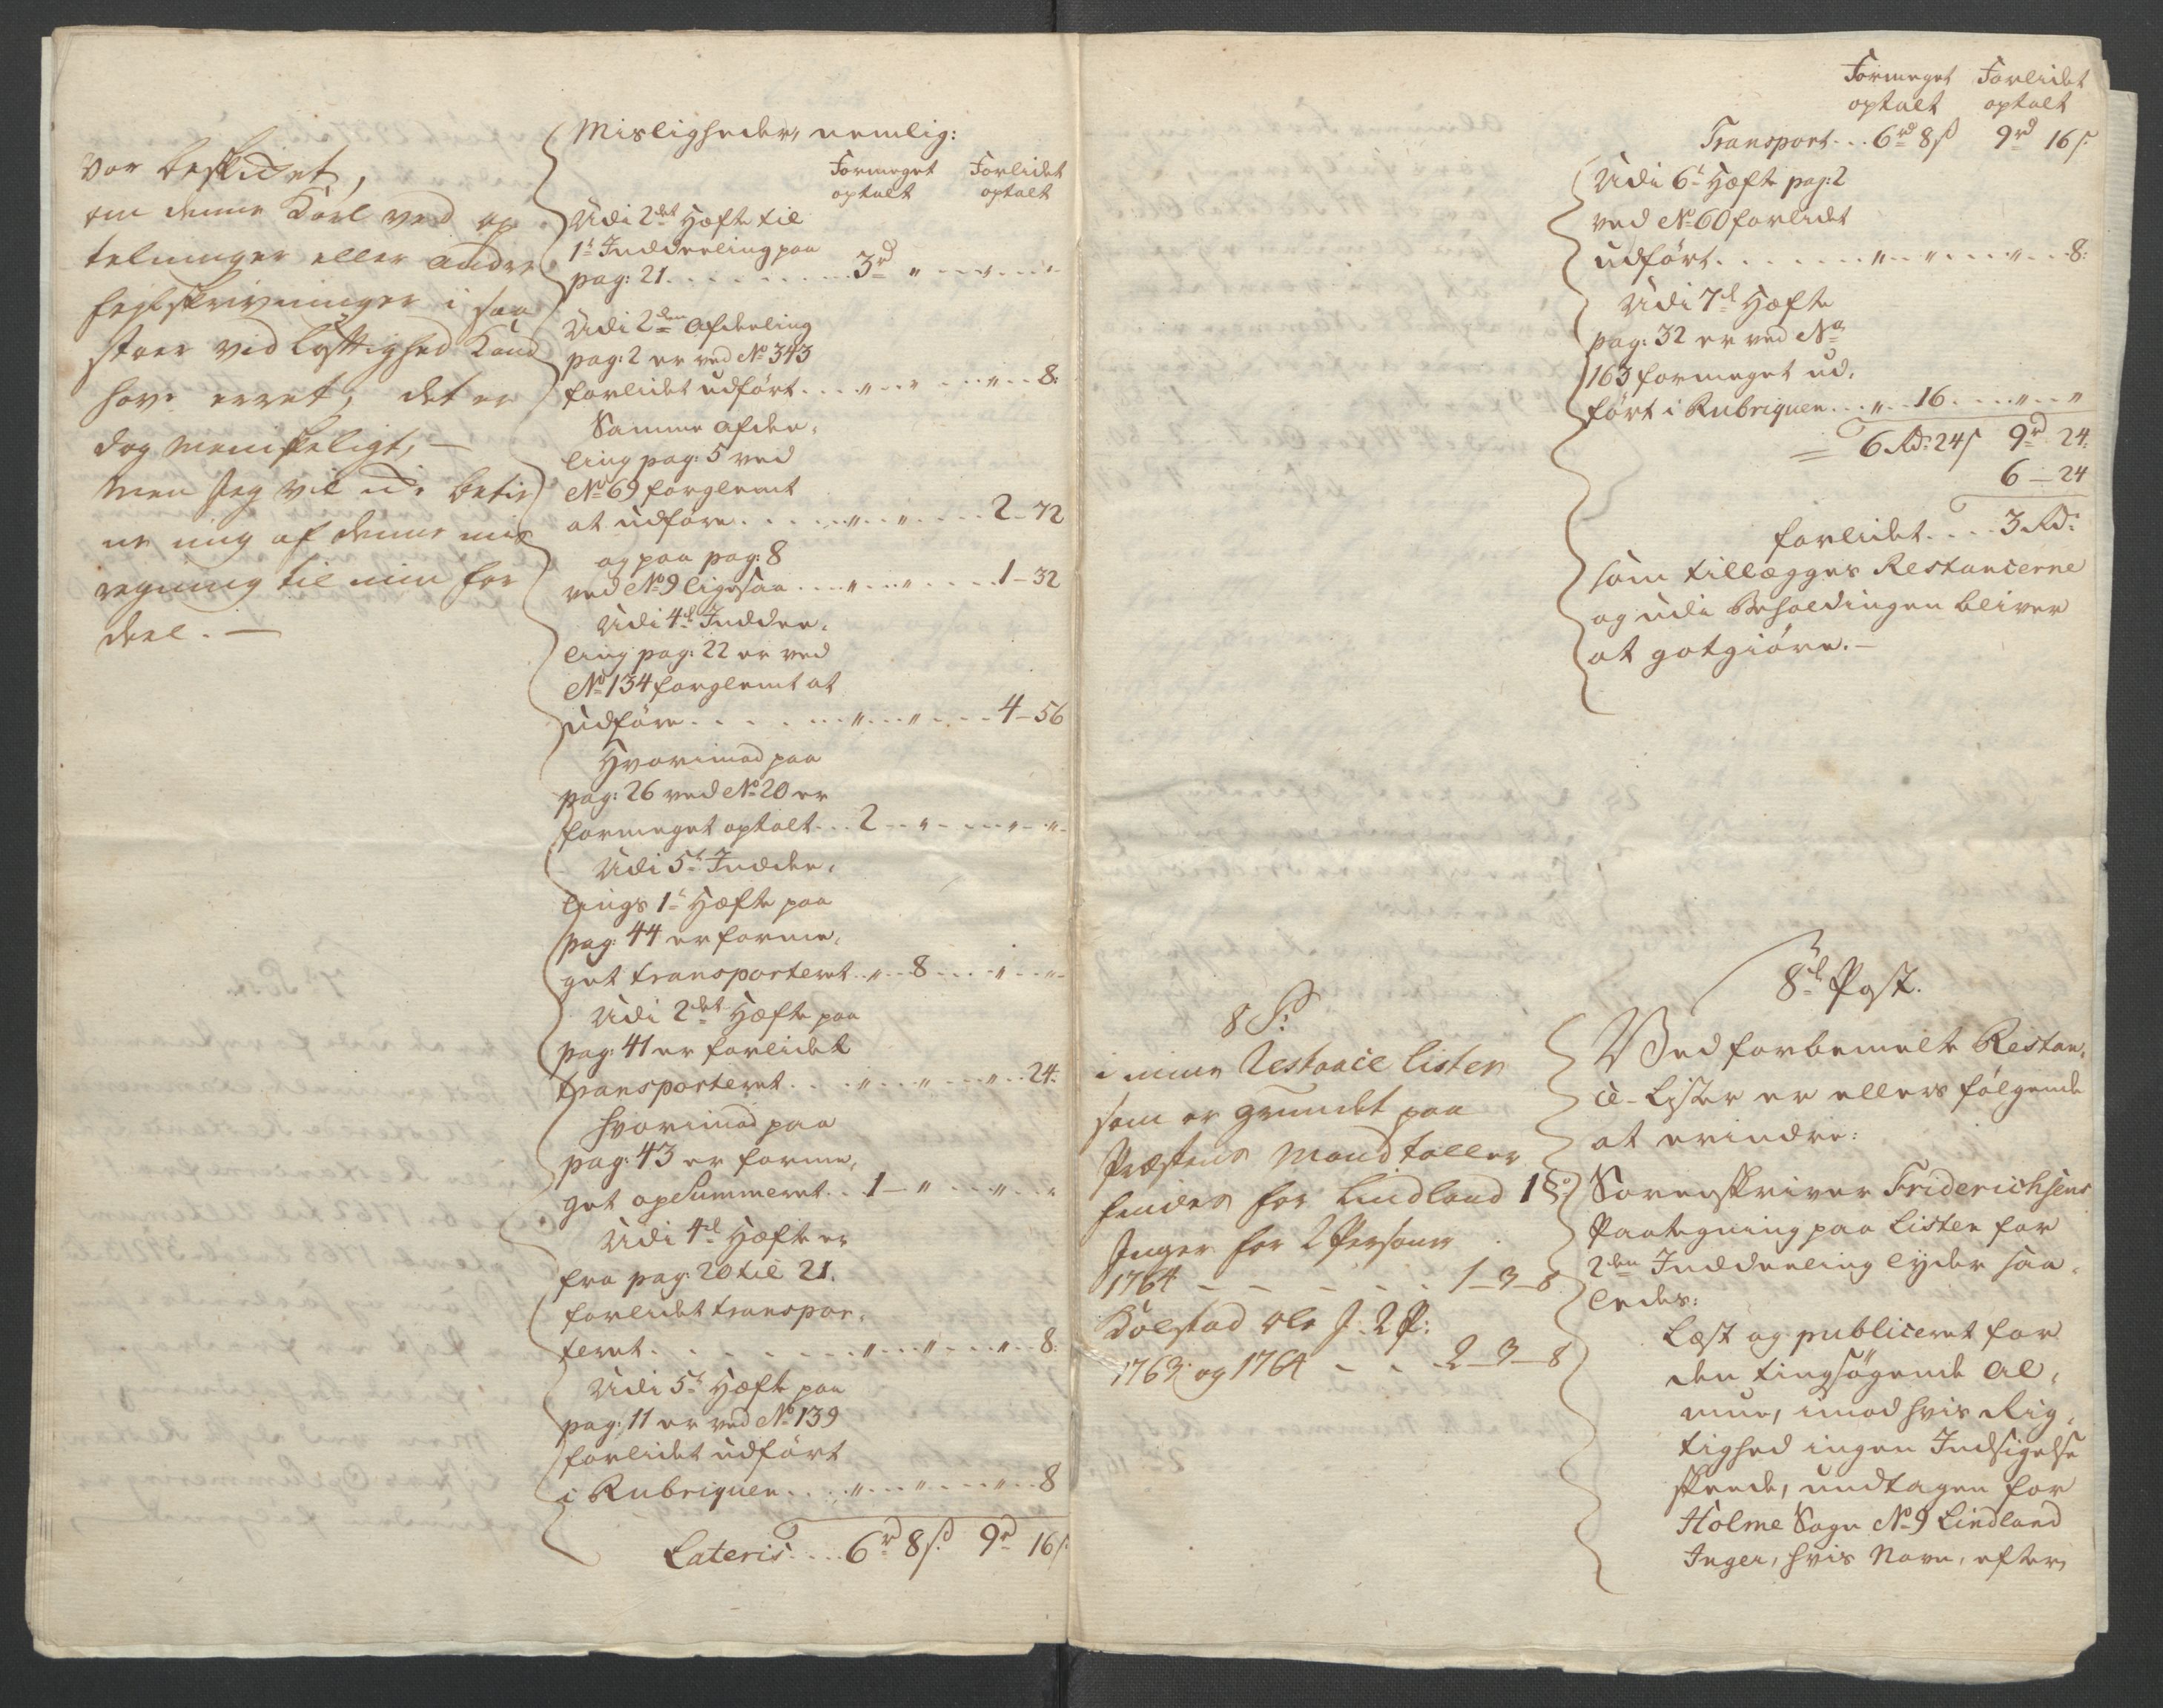 var beskidet,
om denne Karl ved op
telninger eller andre
fejlskrivninger i saa
stoer vidløftighed kand
have erret, det er
dog menskeligt, —
men Jeg vil ei betie
ne mig af denne mis
regning til min for
deel. —
Misligheder, nemlig:
Formeget Forlidet
optalt optalt
Udi 2det Hæfte til
1te Inddeeling paa
pag: 21. . . . . . . . 3rd " — " — " —
Udi 2den Afdeeling
pag: 2 er ved No 343
forlidet udført. . . . " . . " . . . " . . 8:
Samme Afdee-
ling pag: 5 ved
No 69 forglemt
at udføre. . . . . " . . " . . . . 2 - 72
og paa pag: 8
ved No 9 ligesaa . . . . " . . . " . . . . 1 - 32
Udi 4de Inddee-
ling pag: 22 er ved
No 134 forglemt at
udføre. . . . . . . . " . . . " . . . 4 - 56
Hvorimod paa
pag: 26 ved No 20 er
formeget optalt. . . 2 - - " - . . . " - "
Udi 5te Inddee-
lings 1te Hæfte paa
pag: 44 er forme-
get transporteret . . " . . 8 . . . . " . . . "
Udi 2det Hæfte paa
pag: 41 er forlidet
transporteret. . . . " . . . " . . . " . . 24:
Hvorimod paa
pag: 43 er forme-
get opsummeret. . . 1 — " . . . " . . "
Udi 4de Hæfte er
fra pag: 20 til 21.
forlidet transpor-
teret. . . . . . . . " . . . " . . . " . . 8:
Udi 5te Hæfte paa
pag: 11 er ved No 139
forlidet udført
i Rubriquen. . . . " . . . " . . . . " . . 8
Lateris. . . . 6rd 8s. 9rd 16s.
Formeget Forlidet
optalt optalt
Transport. . . 6rd 8s 9rd 16s.
Udi 6te Hæfte pag: 2
ved No 60 forlidt
udført. . . . . . . " . . " . . . " . . . 8:
Udi 7de Hæfte
pag: 32 er ved No
163 formeget ud-
ført i Rubriquen . . . " . . 16 . . . . " . . "
= 6 Rd: 24s 9rd 24.
6 — 24
forlidet. . . . 3 Rd:
som tillegges Restancerne
og udi Beholdingen bliver
at gotgiøre. —
8 P:
i mine Restance lister
som er grundet paa
Præstens mandtaller
findes for Lindland 1 S:
Inger for 2 Persone
1764 — — — — - 1 - 3 - 8
Kolstad Ole J: 2 P:
1763 og 1764 - - 2 - 3 - 8
8de Post.
Ved forbemelte Restan-
ce-Lister er ellers følgende
at erindre:
Sorenskriver Friderichsens
Paategning paa Listen for
2den Inddeeling lyder saa-
ledes:
Læst og publiceret for
den tingsøgende Al-
mue, imod hvis Rig-
tighed ingen Indsigelse
skeede, undtagen for
Holme Sogn No 9 Lindland
Inger, hvis Navn, efter